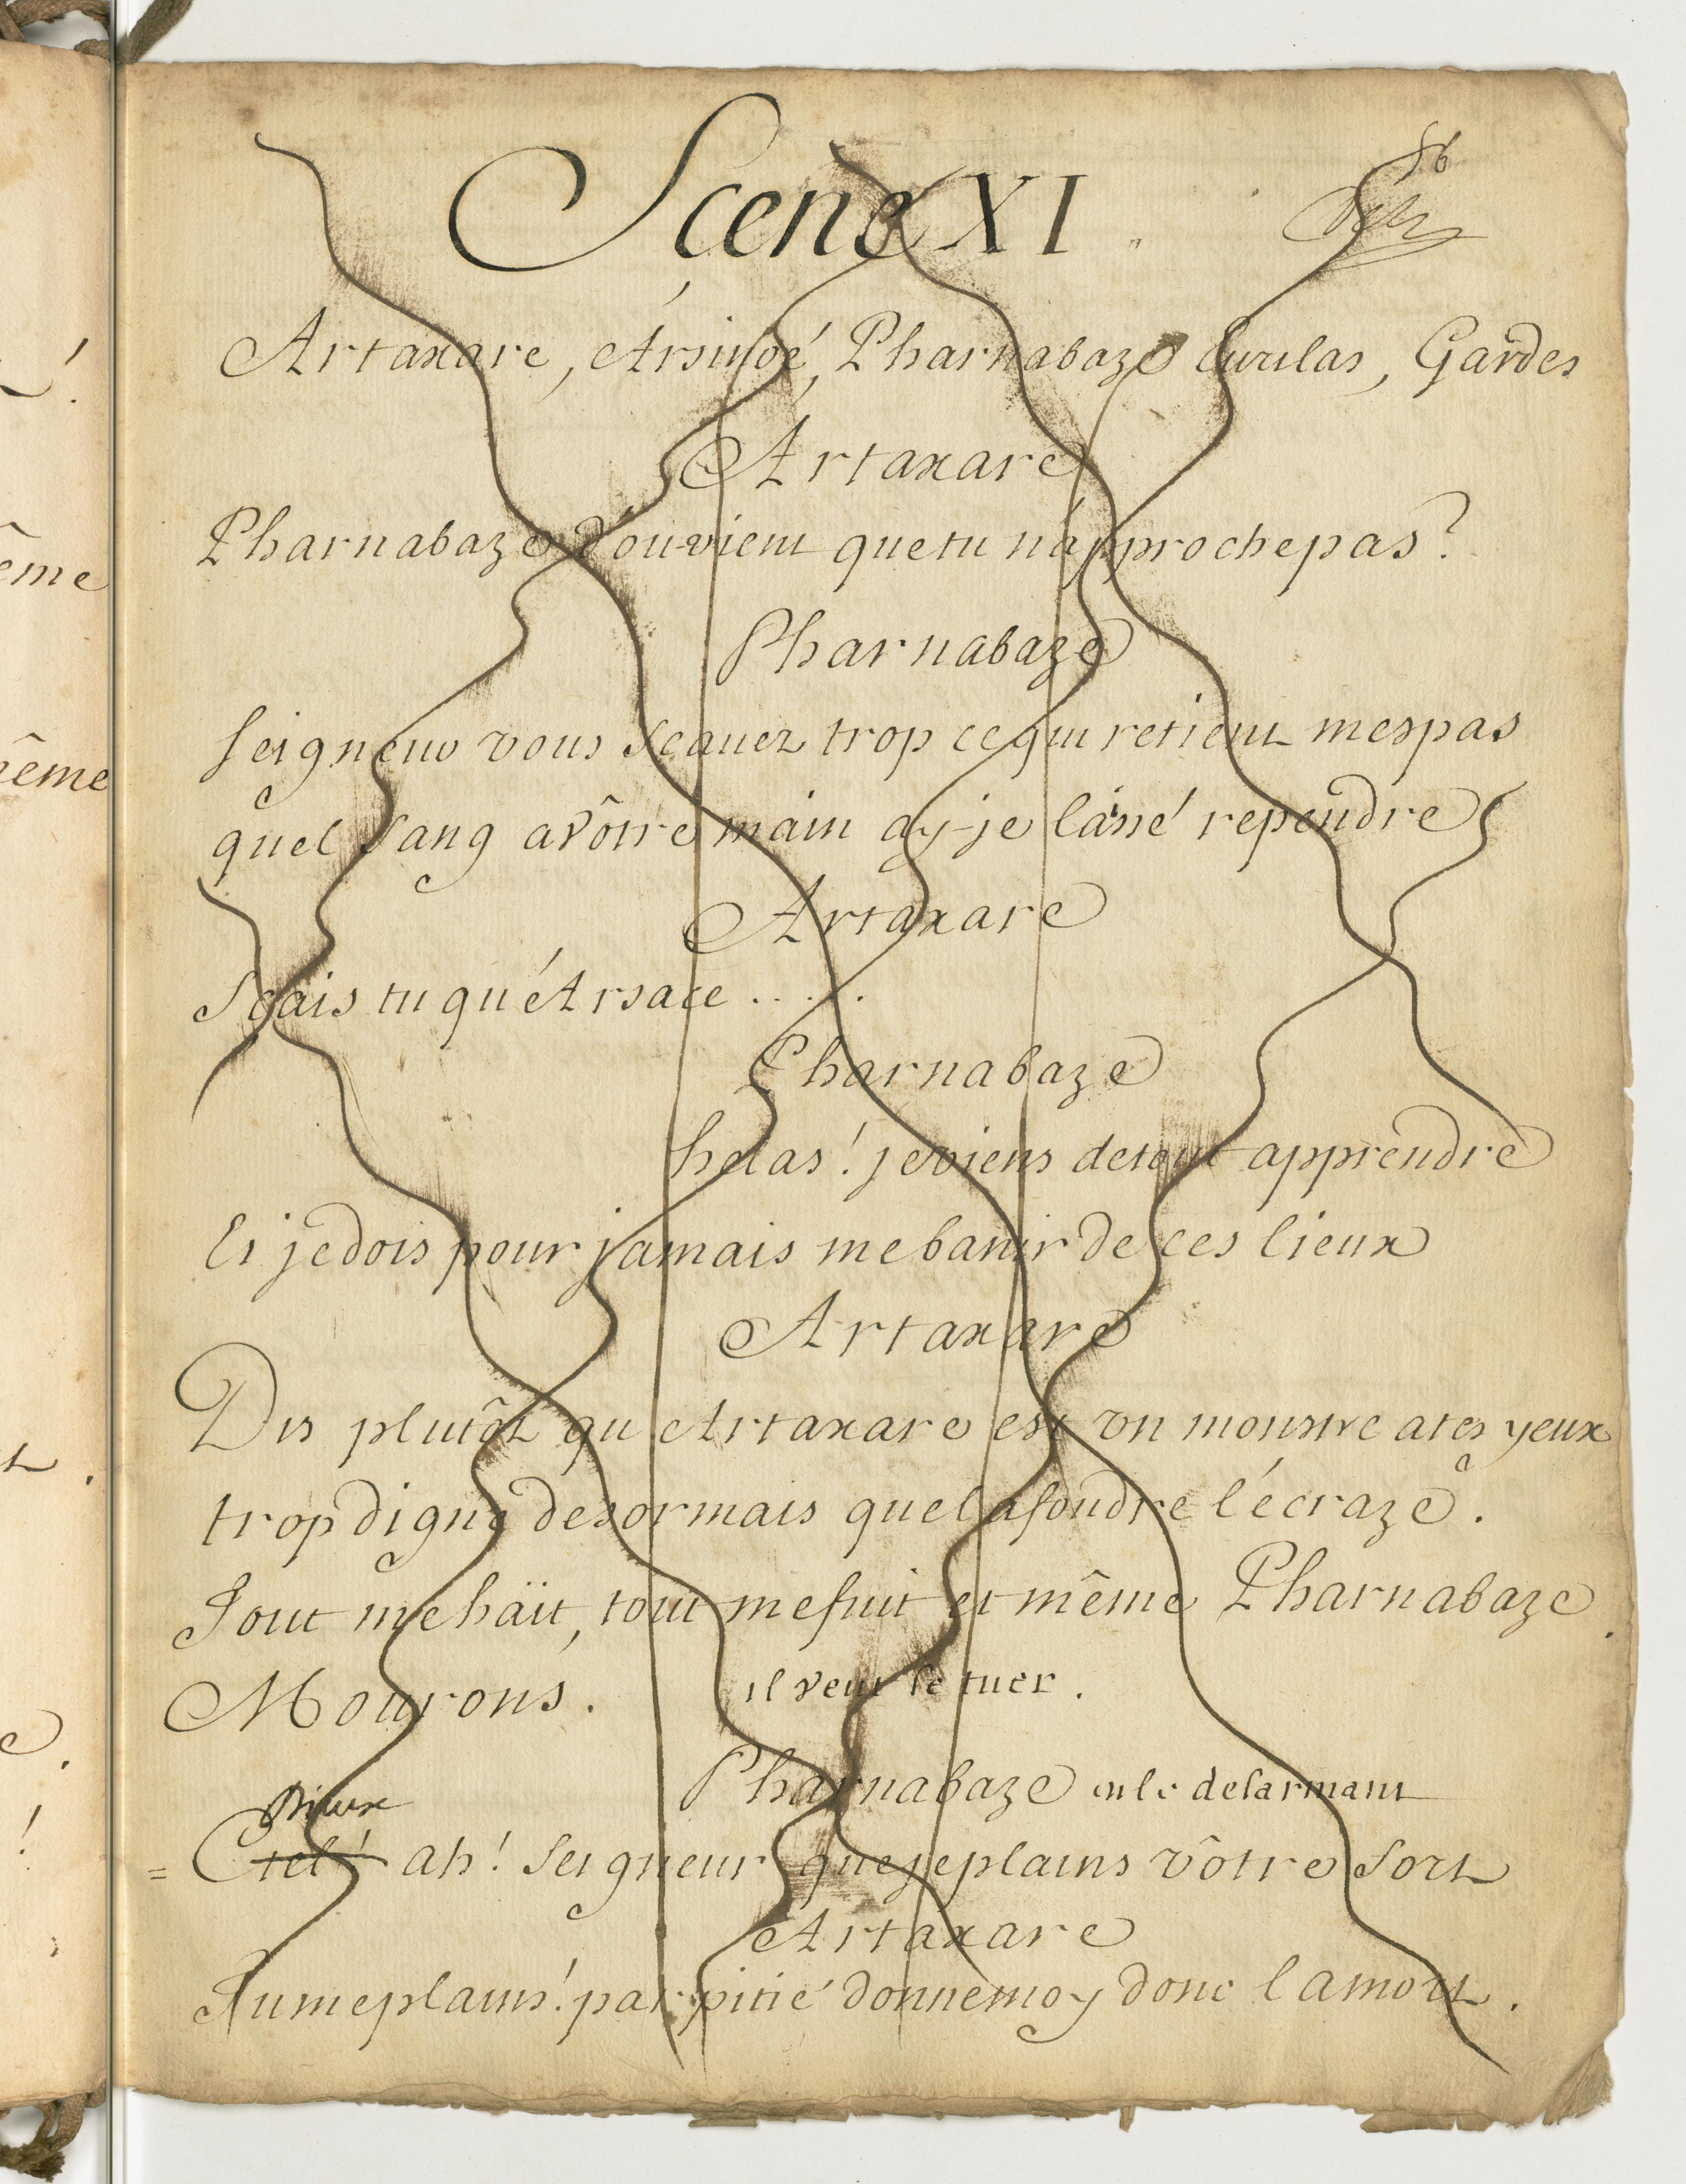 56
Scene XI
Artaxare, Arsinoé, Pharnabaze Eurilas, Gardes
Artaxare
Pharnabaze d'ou-vient que tu n'approche pas?
Pharnabaze
Seigneur vous Scauez trop ce qui retient mes pas
quel Sang a vôtre main ay-je laissé rependre
Artaxare
Scais tu qu'Arsace .....
Pharnabaze
helas! je viens de tout apprendre
Et je dois pour jamais me banir de ces lieux
Artaxare
Dis plutôt qu'Artaxare est vn monstre a tes yeux
trop digne desormais que la foudre l'écraze.
Tout me haït, tout me fuit et même Pharnabaze.
Mourons. il veut se tuer.
Pharnabaze en le desarmant
Dieux
= Ciel! ah! Seigneur que je plains vôtre Sort
Artaxare
Tu me plains! par pitié donne moy donc la mort.
ême
ême